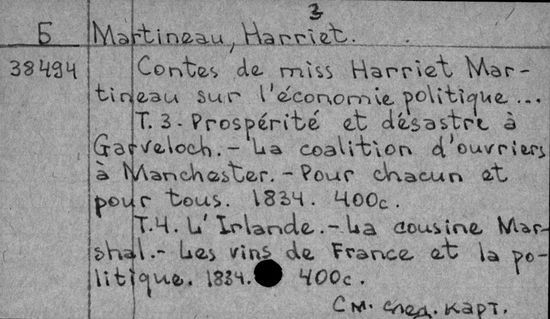 3
Б Martineau, Harriet.
38494 Contes de miss Harriet Mar-
tineau sur l'économie politique ...
T. 3. Prospérité et désastre à
Garveloch. - La coalition d'ouvriers
à Manchester. - Pour chacun et
pour tous. 1834. 400с.
T.4. L'Irlande. - La cousine Mar-
shal. - Les vins de France et la po-
litique. 1834. 400с.
См. след. карт.